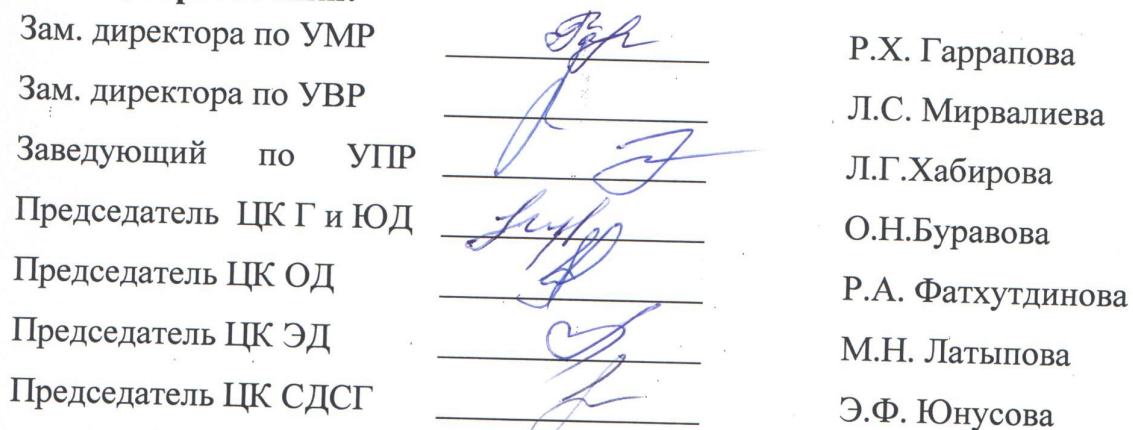 Зам. директора по УМР Р.Х. Гаррапова
Зам. директора по УВР Л.С. Мирвалиева
Заведующий по УПР Л.Г.Хабирова
Председатель ЦК Г и ЮД О.Н.Буравова
Председатель ЦК ОД Р.А. Фатхутдинова
Председатель ЦК ЭД М.Н. Латыпова
Председатель ЦК СДСГ Э.Ф. Юнусова